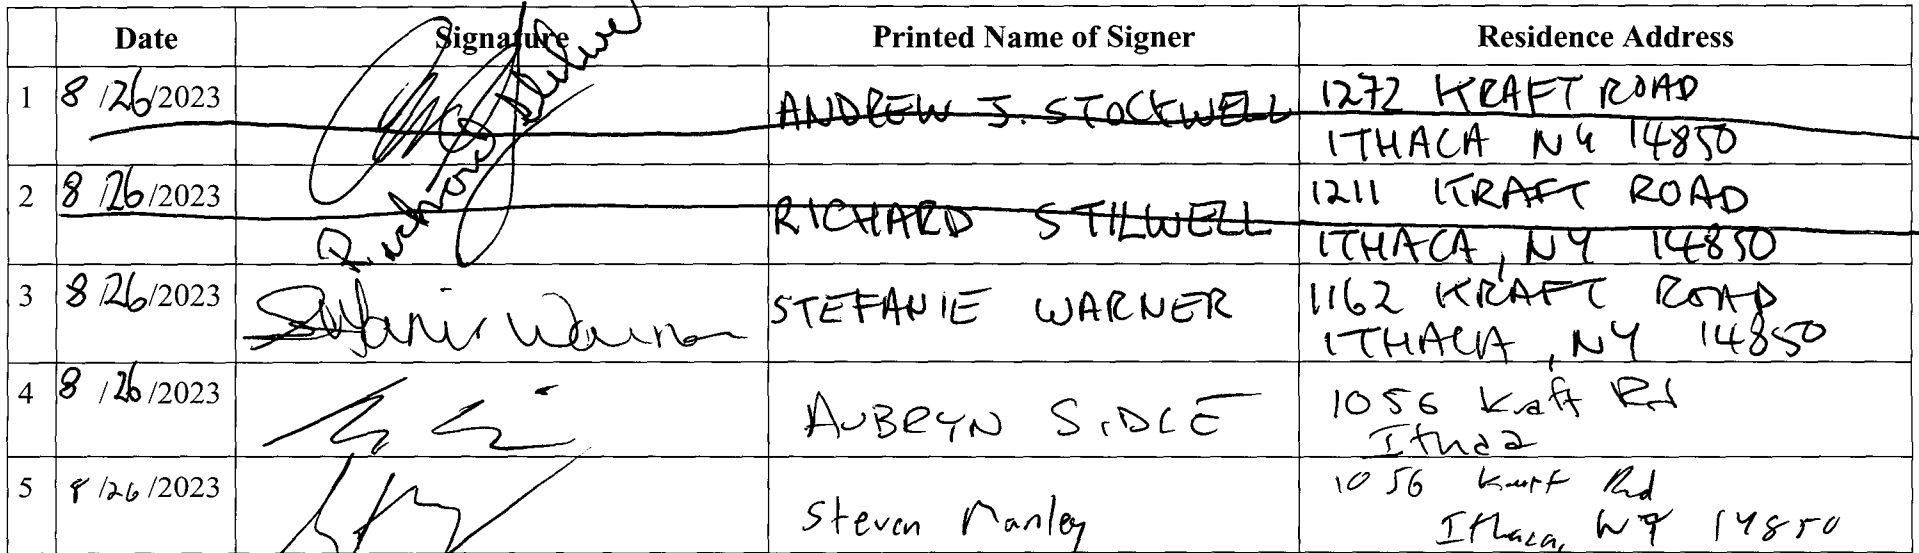 Date Signature Printed Name of Signer Residence Address
1 8/26/2023 ANDREW J. STOCKWELL 1272 KRAFT ROAD
ITHACA NY 14850
2 8/26/2023 Richard Stilwell RICHARD STILWELL 1211 KRAFT ROAD
ITHACA, NY 14850
3 8/26/2023 Stefanie Warner STEFANIE WARNER 1162 KRAFT ROAD
ITHACA, NY 14850
4 8/26/2023 AUBRYN SIDLE 1056 Kraft Rd
Ithaca
5 8/26/2023 Steven Manley 1056 Kraft Rd
Ithaca, NY 14850